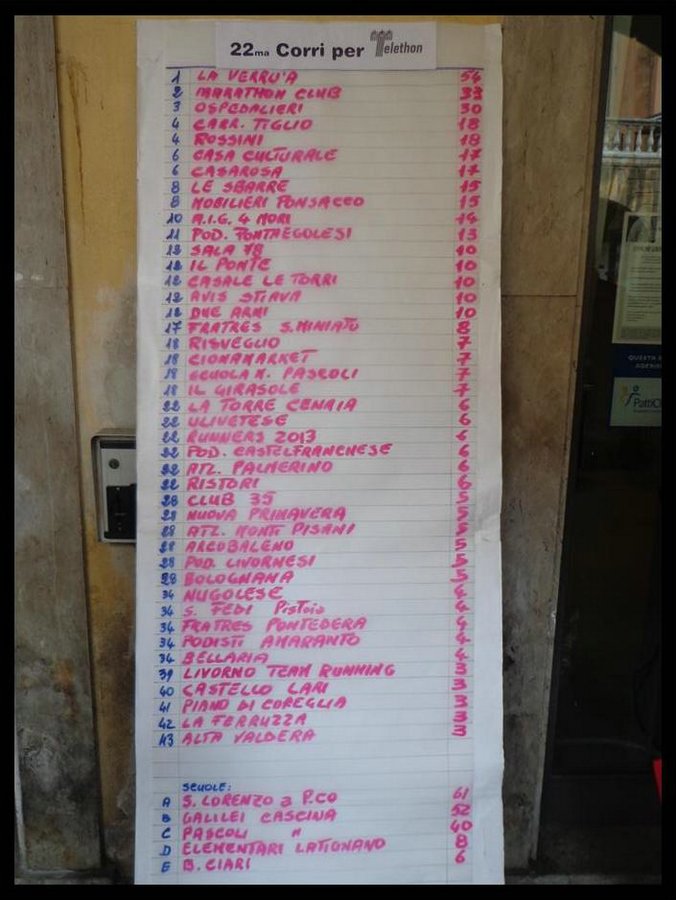 22ma Corri per Telethon
1 LA VERRU'A 54
2 MARATHON CLUB 33
3 OSPEDALIERI 30
4 CARR. TIGLIO 18
4 ROSSINI 18
6 CASA CULTURALE 17
6 CASAROSA 17
8 LE SBARRE 15
8 MOBILIERI PONSACCO 15
10 A.I.G. 4 MORI 14
11 POD. PONTREGOLESI 13
12 SALA 78 10
12 IL PONTE 10
12 CASALE LE TORRI 10
12 AVIS STIAVA 10
12 DUE ARNI 10
17 FRATRES S.MINIATO 8
18 RISVEGLIO 7
18 CIONAMARKET 7
18 SCUOLA N. PASCOLI 7
18 IL GIRASOLE 7
22 LA TORRE CENAIA 6
22 ULIVETESE 6
22 RUNNERS 2013 6
22 POD. CASTELFRANCHESE 6
22 ATL. PALMERINO 6
22 RISTORI 6
28 CLUB 35 5
28 NUOVA PRIMAVERA 5
28 ATL. MONTI PISANI 5
28 ARCOBALENO 5
28 POD. LIVORNESI 5
28 BOLOGNANA 5
34 NUGOLESE 4
34 S. FEDI Pistoia 4
34 FRATRES PONTEDERA 4
34 PODISTI AMARANTO 4
34 BELLARIA 4
39 LIVORNO TEAM RUNNING 3
40 CASTELLO LARI 3
41 PIANO DI COREGLIA 3
42 LA FERRUZZA 3
43 ALTA VALDERA 3
SCUOLE:
A S. LORENZO a P.CO 61
B GALILEI CASCINA 52
C PASCOLI " 40
D ELEMENTARI LATIGNANO 8
E B. CIARI 6